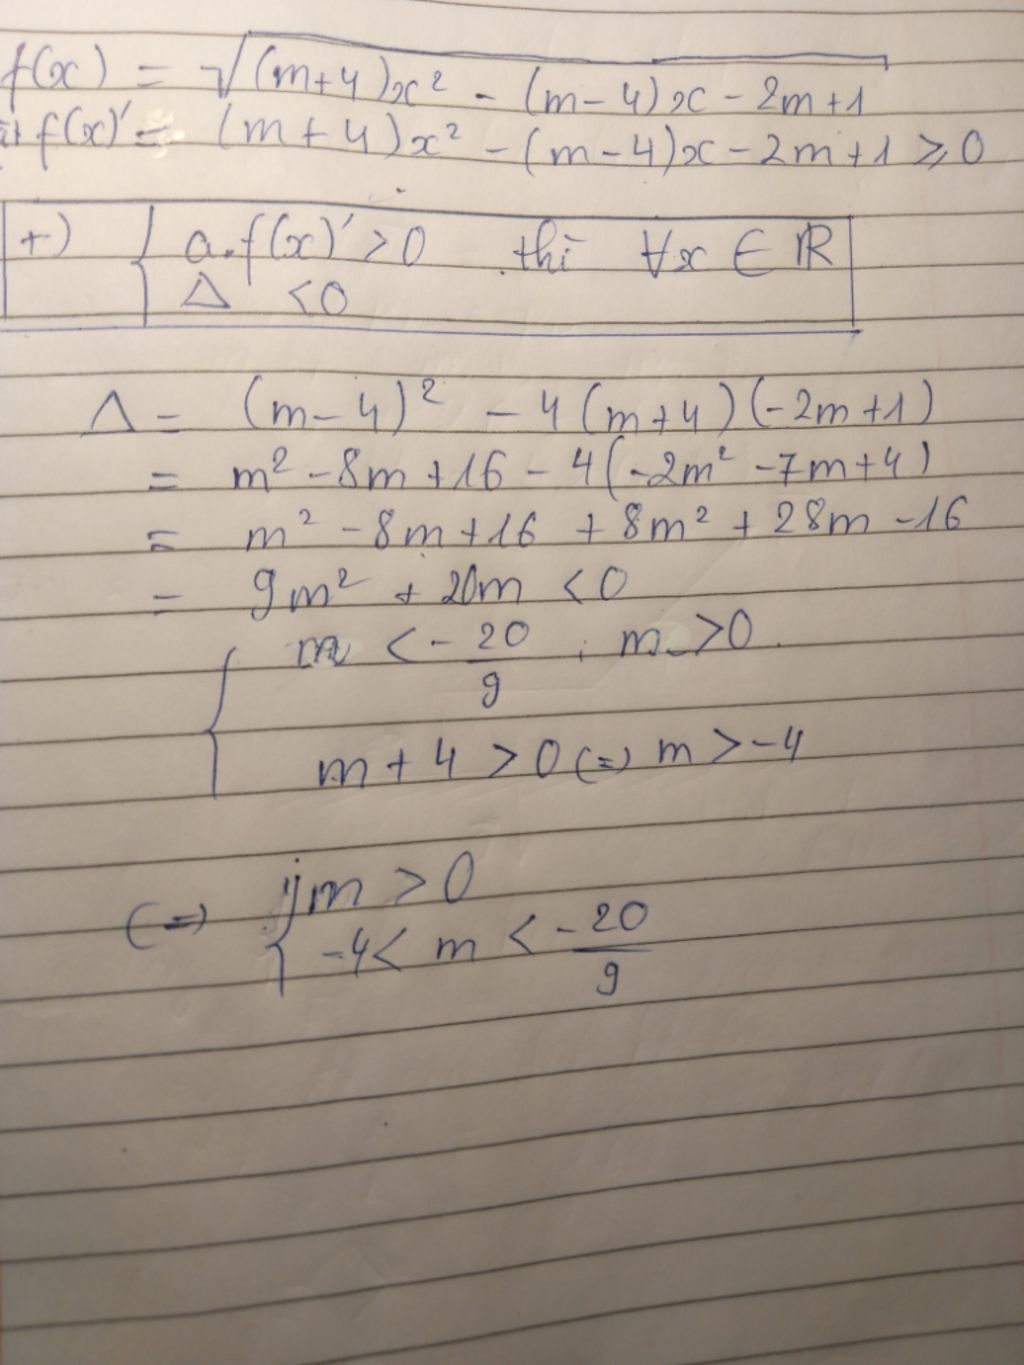 f(x) = √(m+4)x² - (m-4)x - 2m+1
f(x)' = (m+4)x² - (m-4)x - 2m+1 ⩾ 0
+) { a.f(x)' > 0 thì ∀x ∈ ℝ
Δ < 0
Δ = (m-4)² - 4(m+4)(-2m+1)
= m² - 8m + 16 - 4(-2m² - 7m + 4)
= m² - 8m + 16 + 8m² + 28m - 16
= 9m² + 20m < 0
{ m < -20/9 ; m > 0
m + 4 > 0 (=) m > -4
(=) { m > 0
-4 < m < -20/9